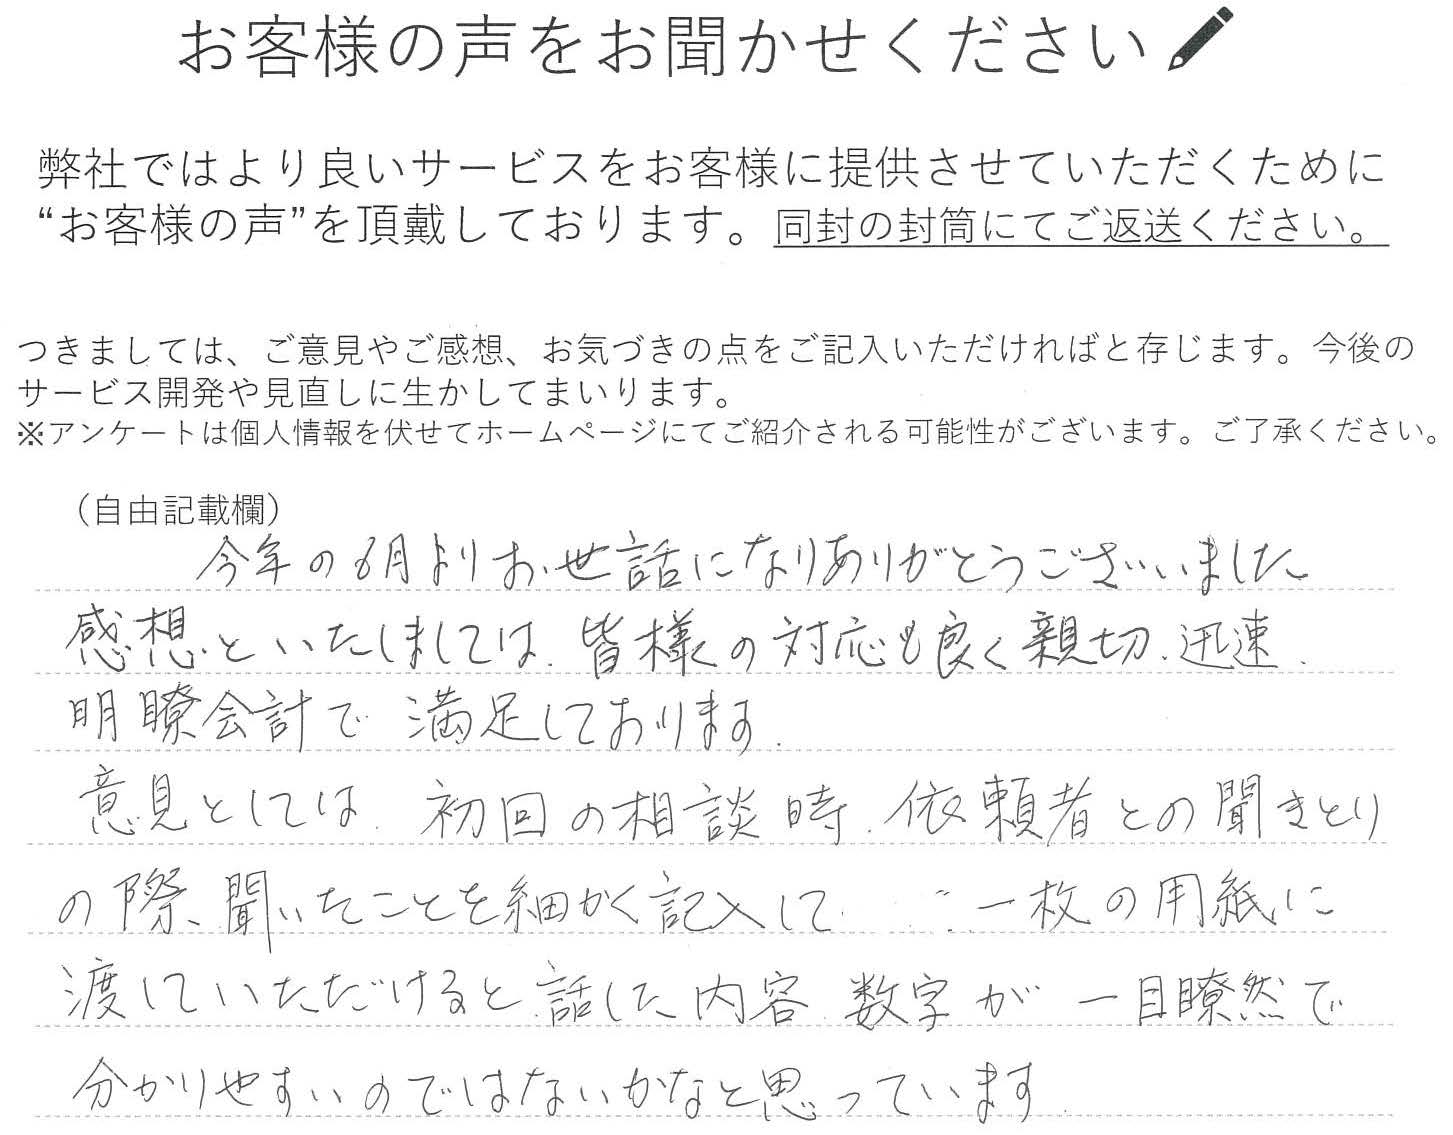 お客様の声をお聞かせください
弊社ではより良いサービスをお客様に提供させていただくために
“お客様の声”を頂戴しております。同封の封筒にてご返送ください。
つきましては、ご意見やご感想、お気づきの点をご記入いただければと存じます。今後の
サービス開発や見直しに生かしてまいります。
※アンケートは個人情報を伏せてホームページにてご紹介される可能性がございます。ご了承ください。
（自由記載欄）
今年の6月よりお世話になりありがとうございました
感想といたしましては、皆様の対応も良く親切、迅速、
明瞭会計で 満足しております。
意見としては、初回の相談時、依頼者との聞きとり
の際、聞いたことを細かく記入して 一枚の用紙に
渡していただけると話した内容 数字が 一目瞭然で
分かりやすいのではないかなと思っています。